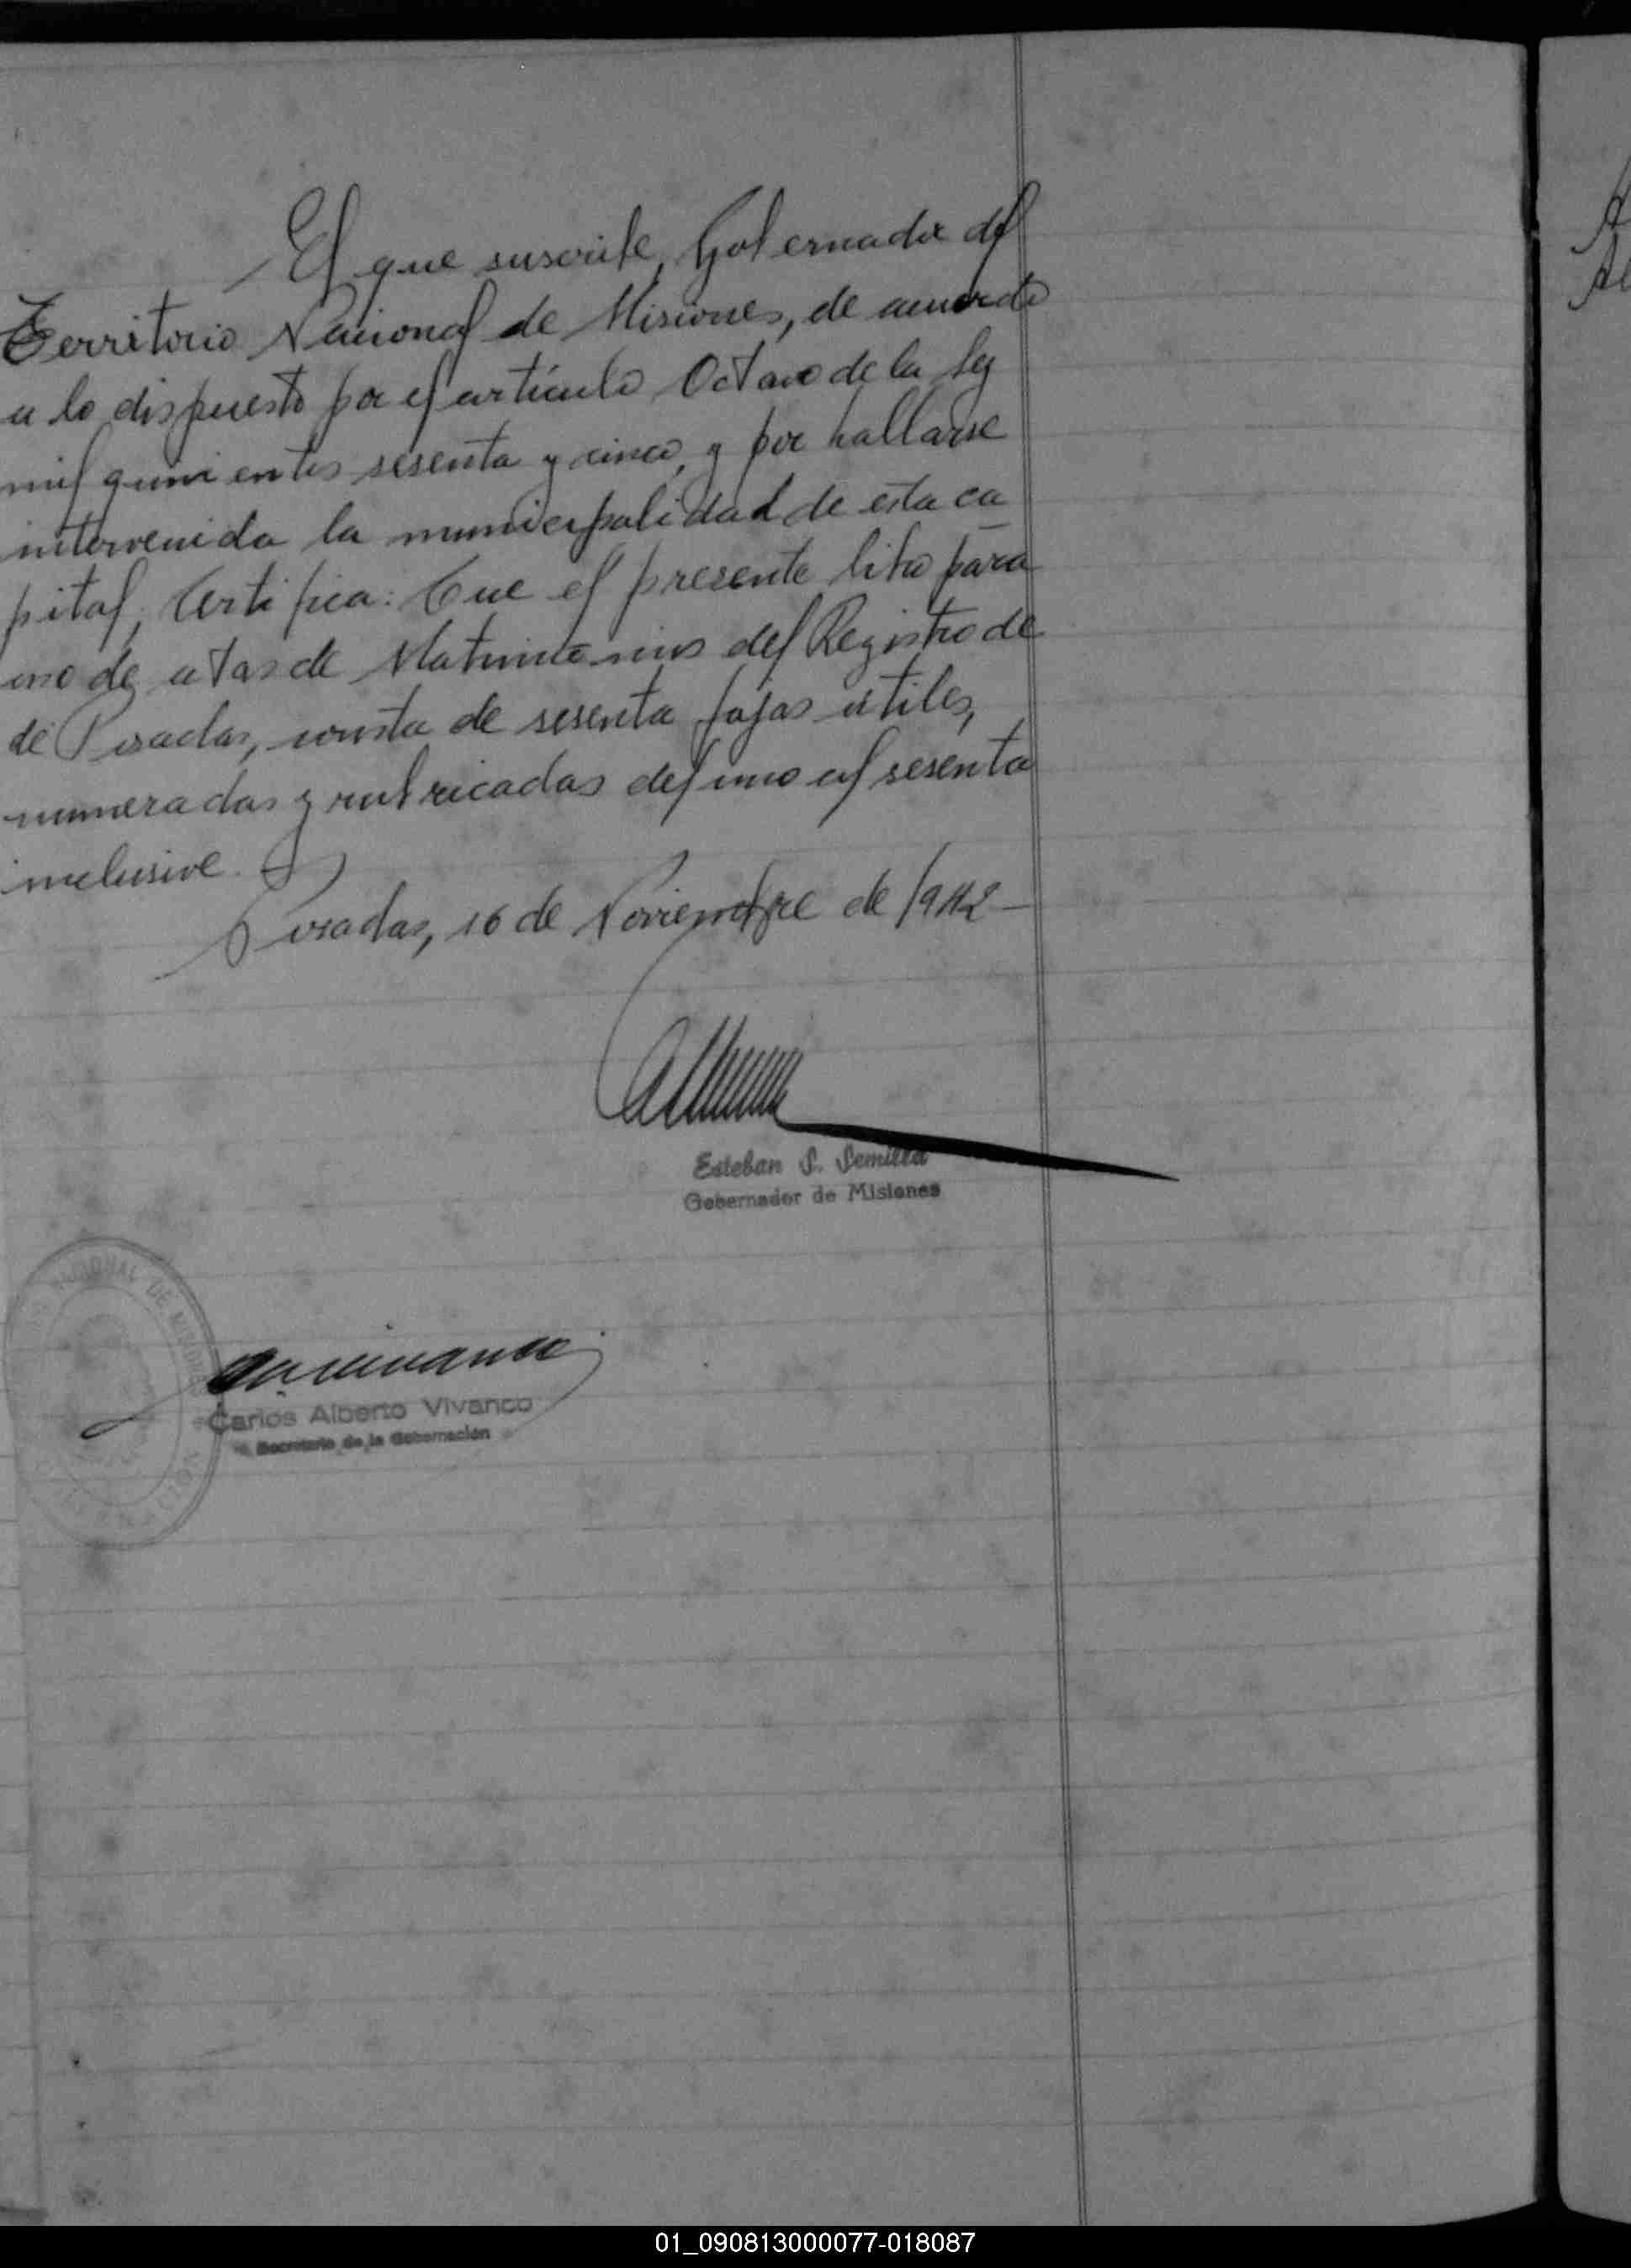 El que suscribe, Gobernador del
Territorio Nacional de Misiones, de acuerdo
a lo dispuesto por el artículo Octavo de la Ley
mil quinientos sesenta y cinco, y por hallarse
intervenida la municipalidad de esta ca
pital, Certifica: Que el presente libro para
de actas de Matrimonios del Registro de
de Posadas, consta de sesenta fojas utiles,
numeradas y rubricadas del uno al sesenta
inclusive.
Posadas, 16 de Noviembre de 1942
Esteban S. Semilla
Gobernador de Misiones
NACIONAL DE MISIONES
Carlos Alberto Vivanco
Secretario de la Gobernación
01_090813000077-018087